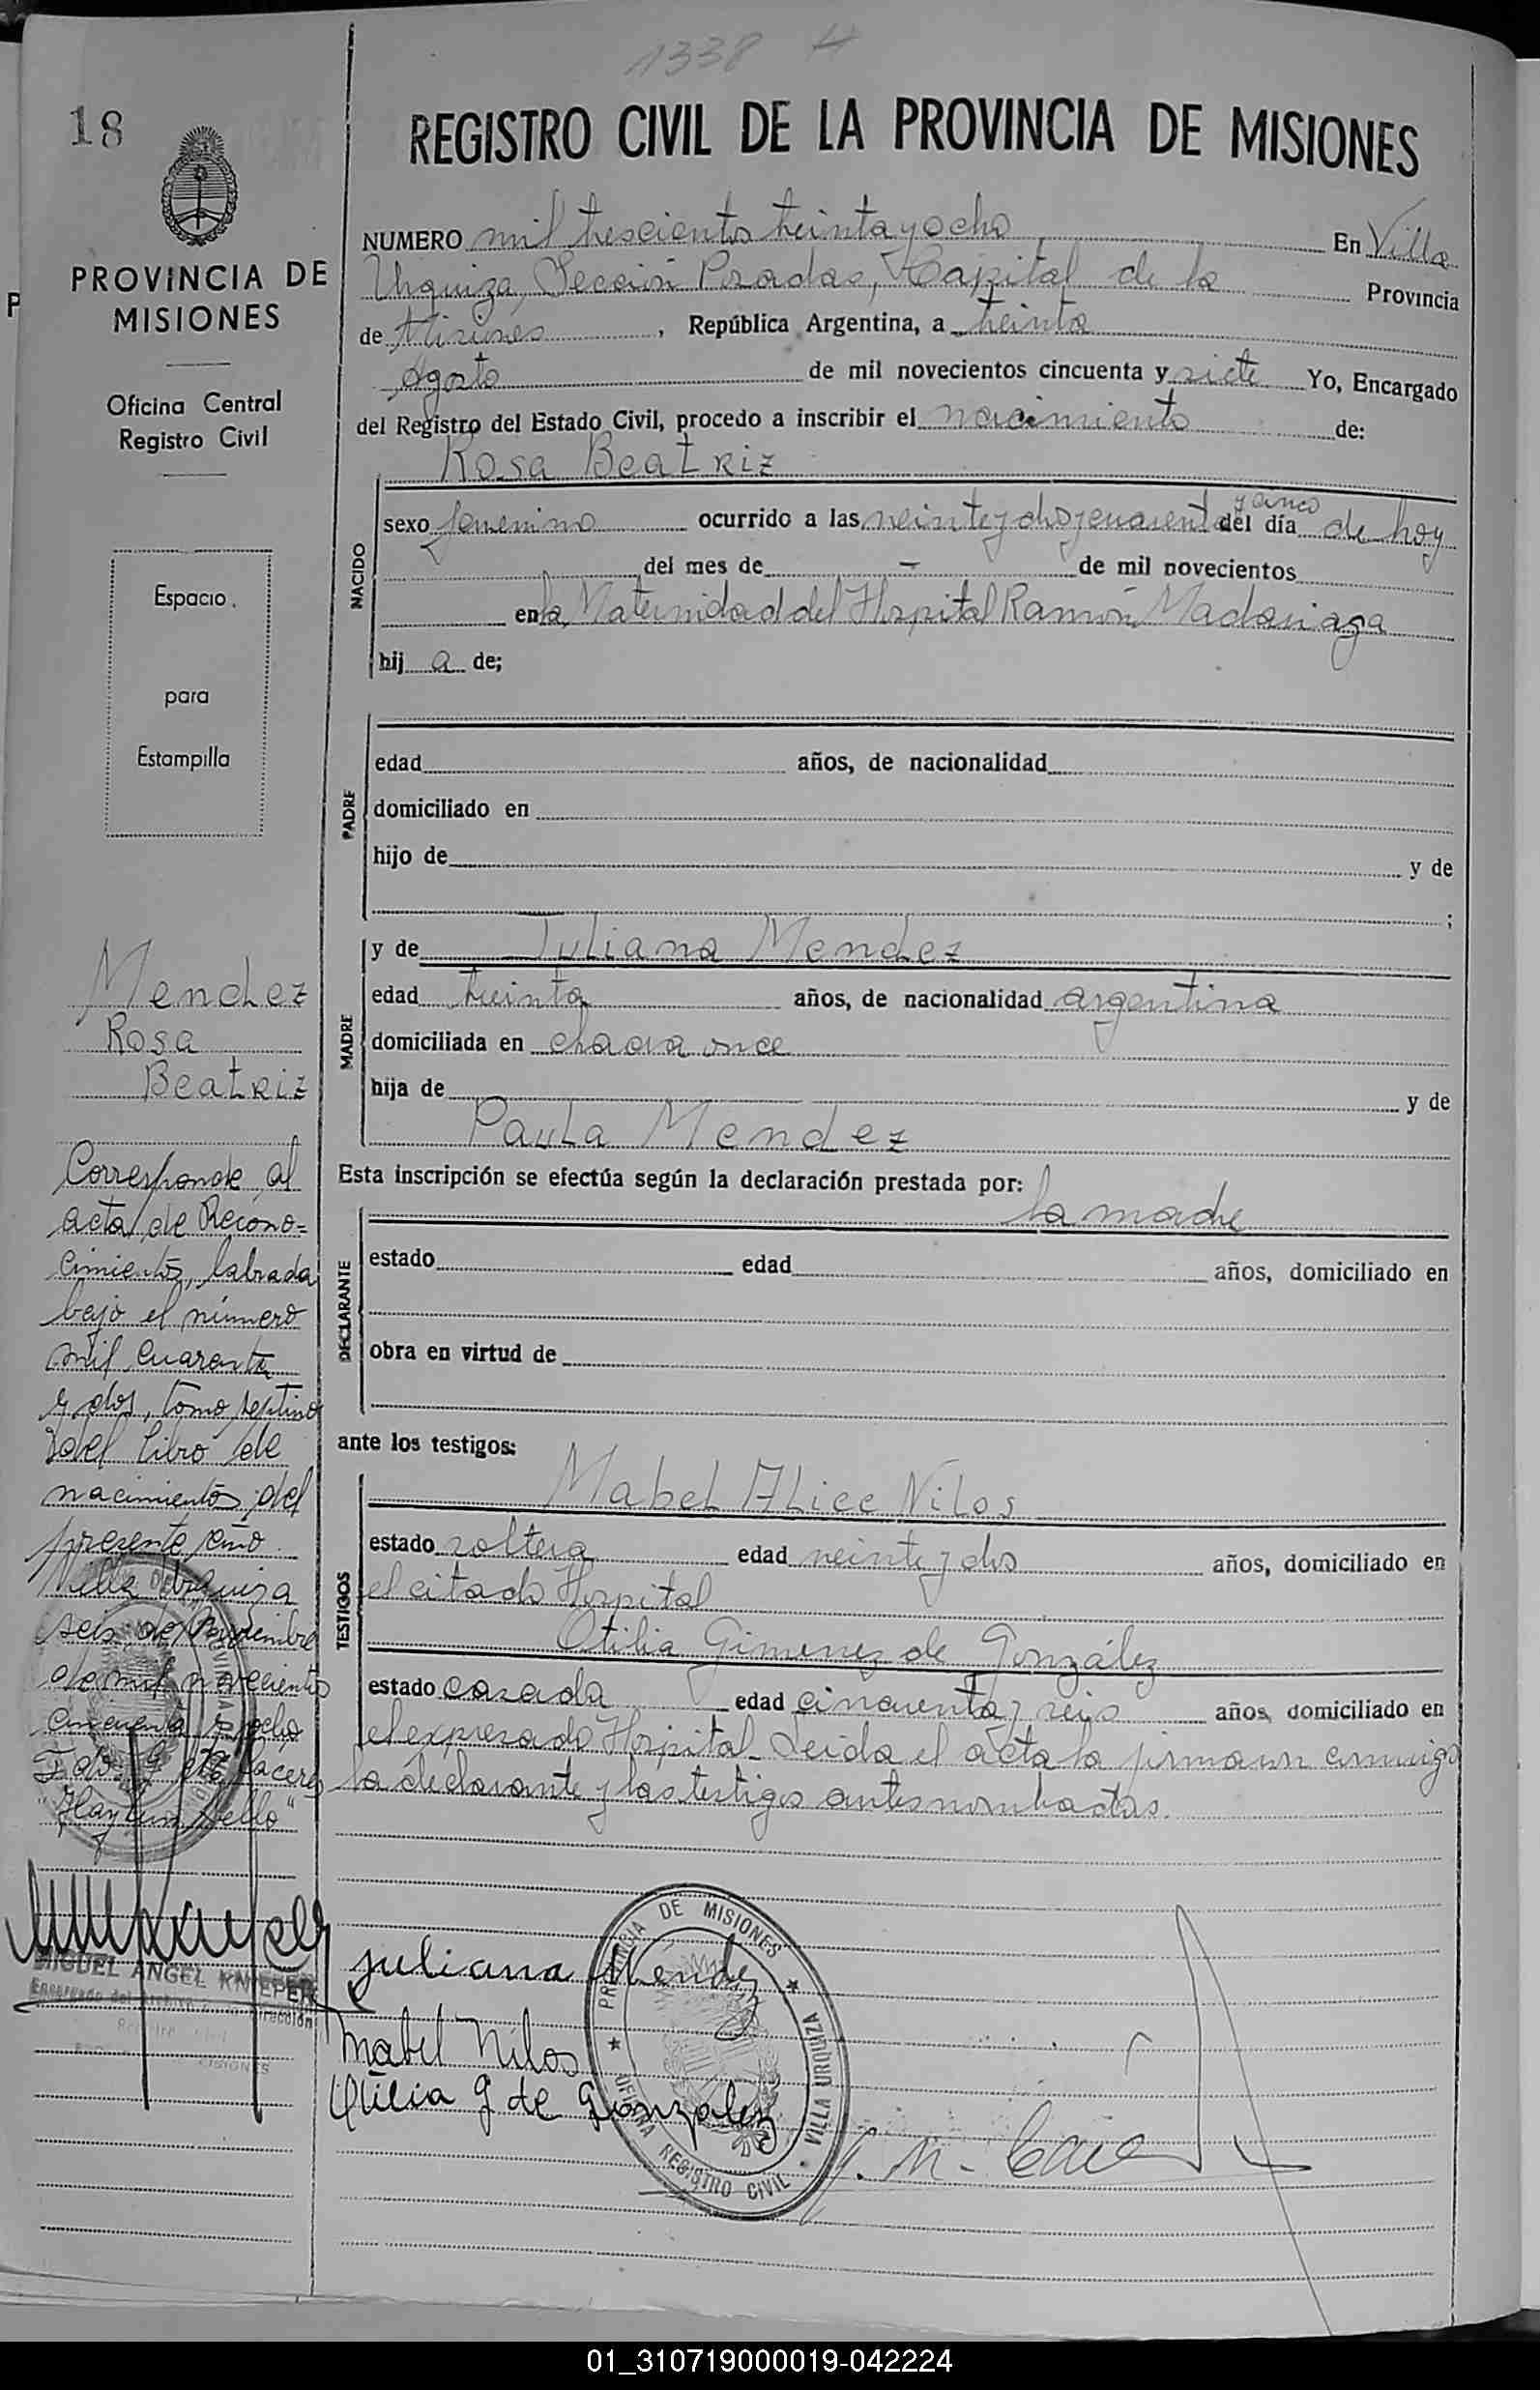 1338 H
18
REGISTRO CIVIL DE LA PROVINCIA DE MISIONES
PROVINCIA DE
MISIONES
Oficina Central
Registro Civil
Espacio
para
Estampilla
NUMERO mil trescientos treinta y ocho, En Villa
Urquiza, Sección Posadas, Capital de la Provincia
de Misiones, República Argentina, a treinta
Agosto de mil novecientos cincuenta y siete Yo, Encargado
del Registro del Estado Civil, procedo a inscribir el nacimiento de:
Rosa Beatriz
NACIDO
y cinco
sexo femenino ocurrido a las veinte y dos y cuarenta del día de hoy
del mes de - de mil novecientos
en la Maternidad del Hospital Ramón Madariaga
hij a de;
PADRE
edad años, de nacionalidad
domiciliado en
hijo de y de
;
MADRE
y de Juliana Mendez
edad treinta años, de nacionalidad argentina
domiciliada en chacra once
hija de y de
Paula Mendez
Esta inscripción se efectúa según la declaración prestada por:
la madre
DECLARANTE
estado edad años, domiciliado en
obra en virtud de
ante los testigos:
TESTIGOS
Mabel Alice Nilos
estado soltera edad veinte y dos años, domiciliado en
el citado Hospital
Otilia Gimenez de González
estado casada edad cincuenta y seis años, domiciliado en
el expresado Hospital. Leida el acta la firmaron conmigo
la declarante y las testigos antes nombradas.
Mendez
Rosa
Beatriz
Corresponde al
acta de Recono=
cimiento, labrada
bajo el número
mil cuarenta
y dos, tomo septimo
del libro de
nacimientos del
presente año.
Villa Urquiza
seis de Noviembre
de mil novecientos
cincuenta y ocho
"Hay un sello"
MIGUEL ANGEL KNIEPER
Encargado del Archivo
Registro Civil
MISIONES
Juliana Mendez
Mabel Nilos
Otilia G de González
PROVINCIA DE MISIONES ★ VILLA URQUIZA
★ OFICINA REGISTRO CIVIL
01_310719000019-042224